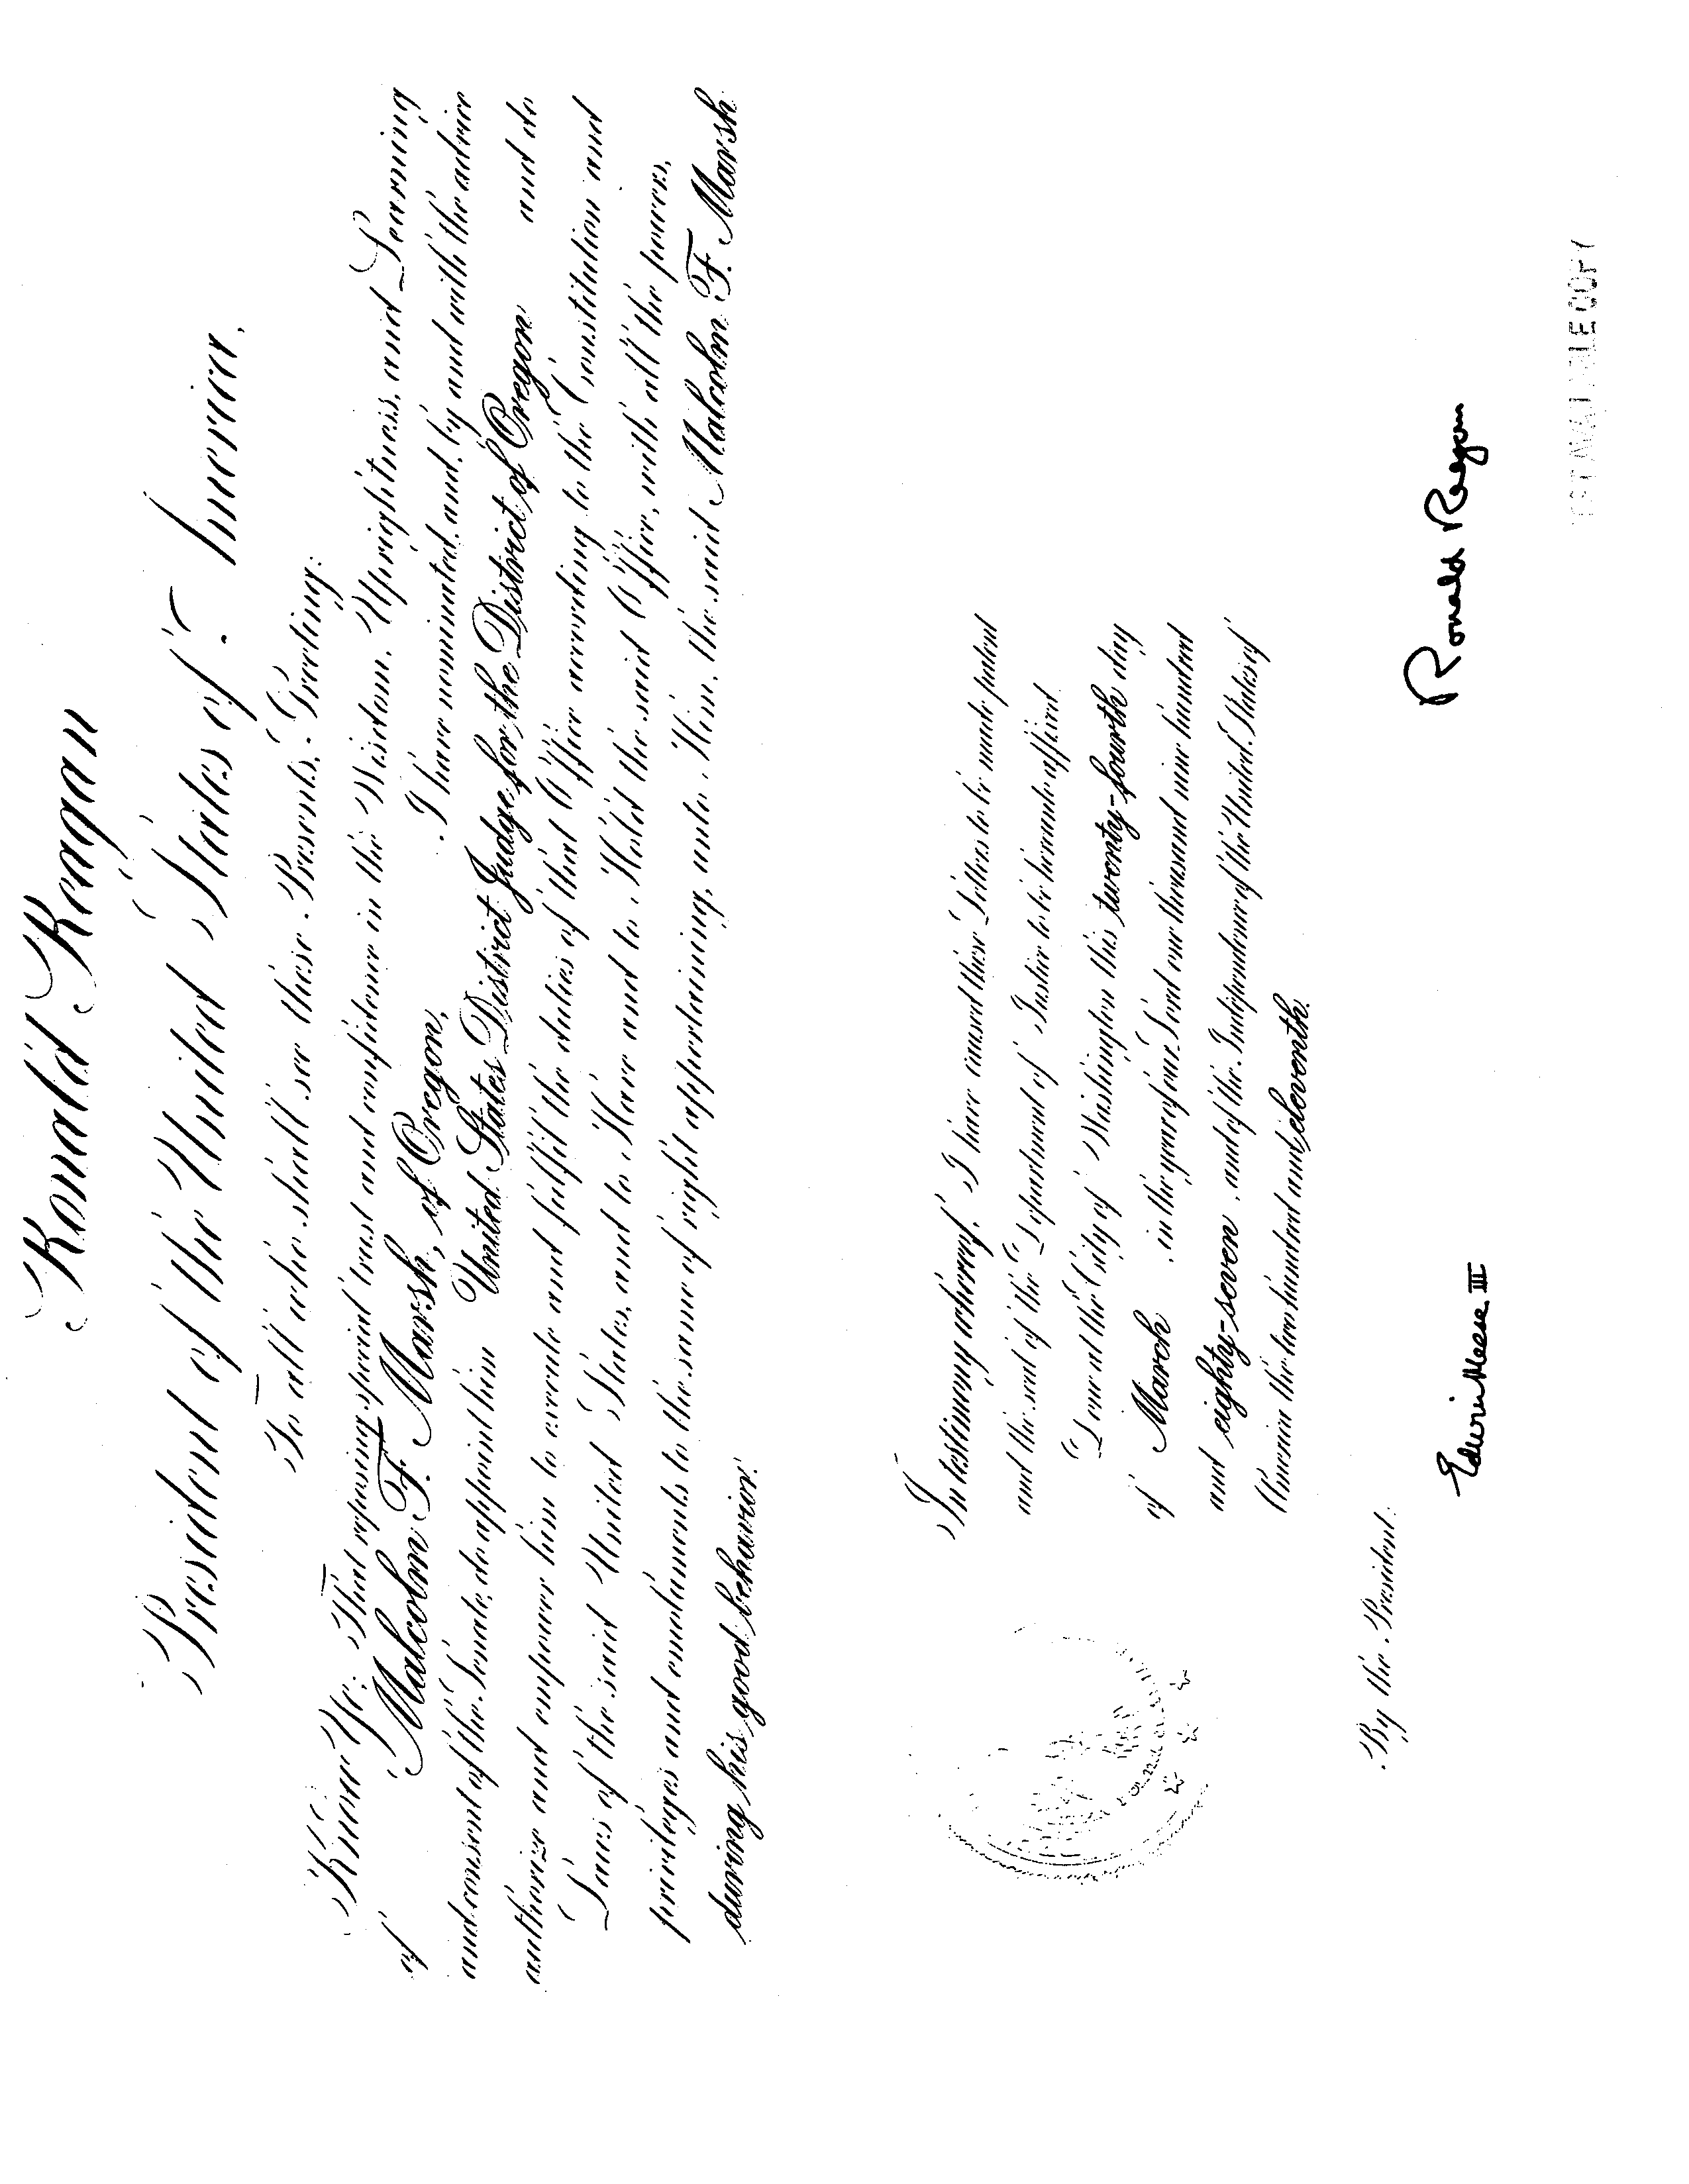 Ronald Reagan
President of the United States of America,
To all who shall see these Presents, Greeting:
Know Ye; That reposing special trust and confidence in the Wisdom, Uprightness, and Learning
of Malcolm F. Marsh, of Oregon, I have nominated, and, by and with the advice
and consent of the Senate, do appoint him United States District Judge for the District of Oregon and do
authorize and empower him to execute and fulfil the duties of that Office according to the Constitution and
Laws of the said United States, and to Have and to Hold the said Office, with all the powers,
privileges and emoluments to the same of right appertaining, unto Him, the said Malcolm F. Marsh
during his good behavior.
In testimony whereof, I have caused these Letters to be made patent
and the seal of the Department of Justice to be hereunto affixed.
Done at the City of Washington this twenty-fourth day
of March, in the year of our Lord one thousand nine hundred
and eighty-seven, and of the Independence of the United States of
America the two hundred and eleventh.
By the President:
Ronald Reagan
Edwin Meese III
COPY